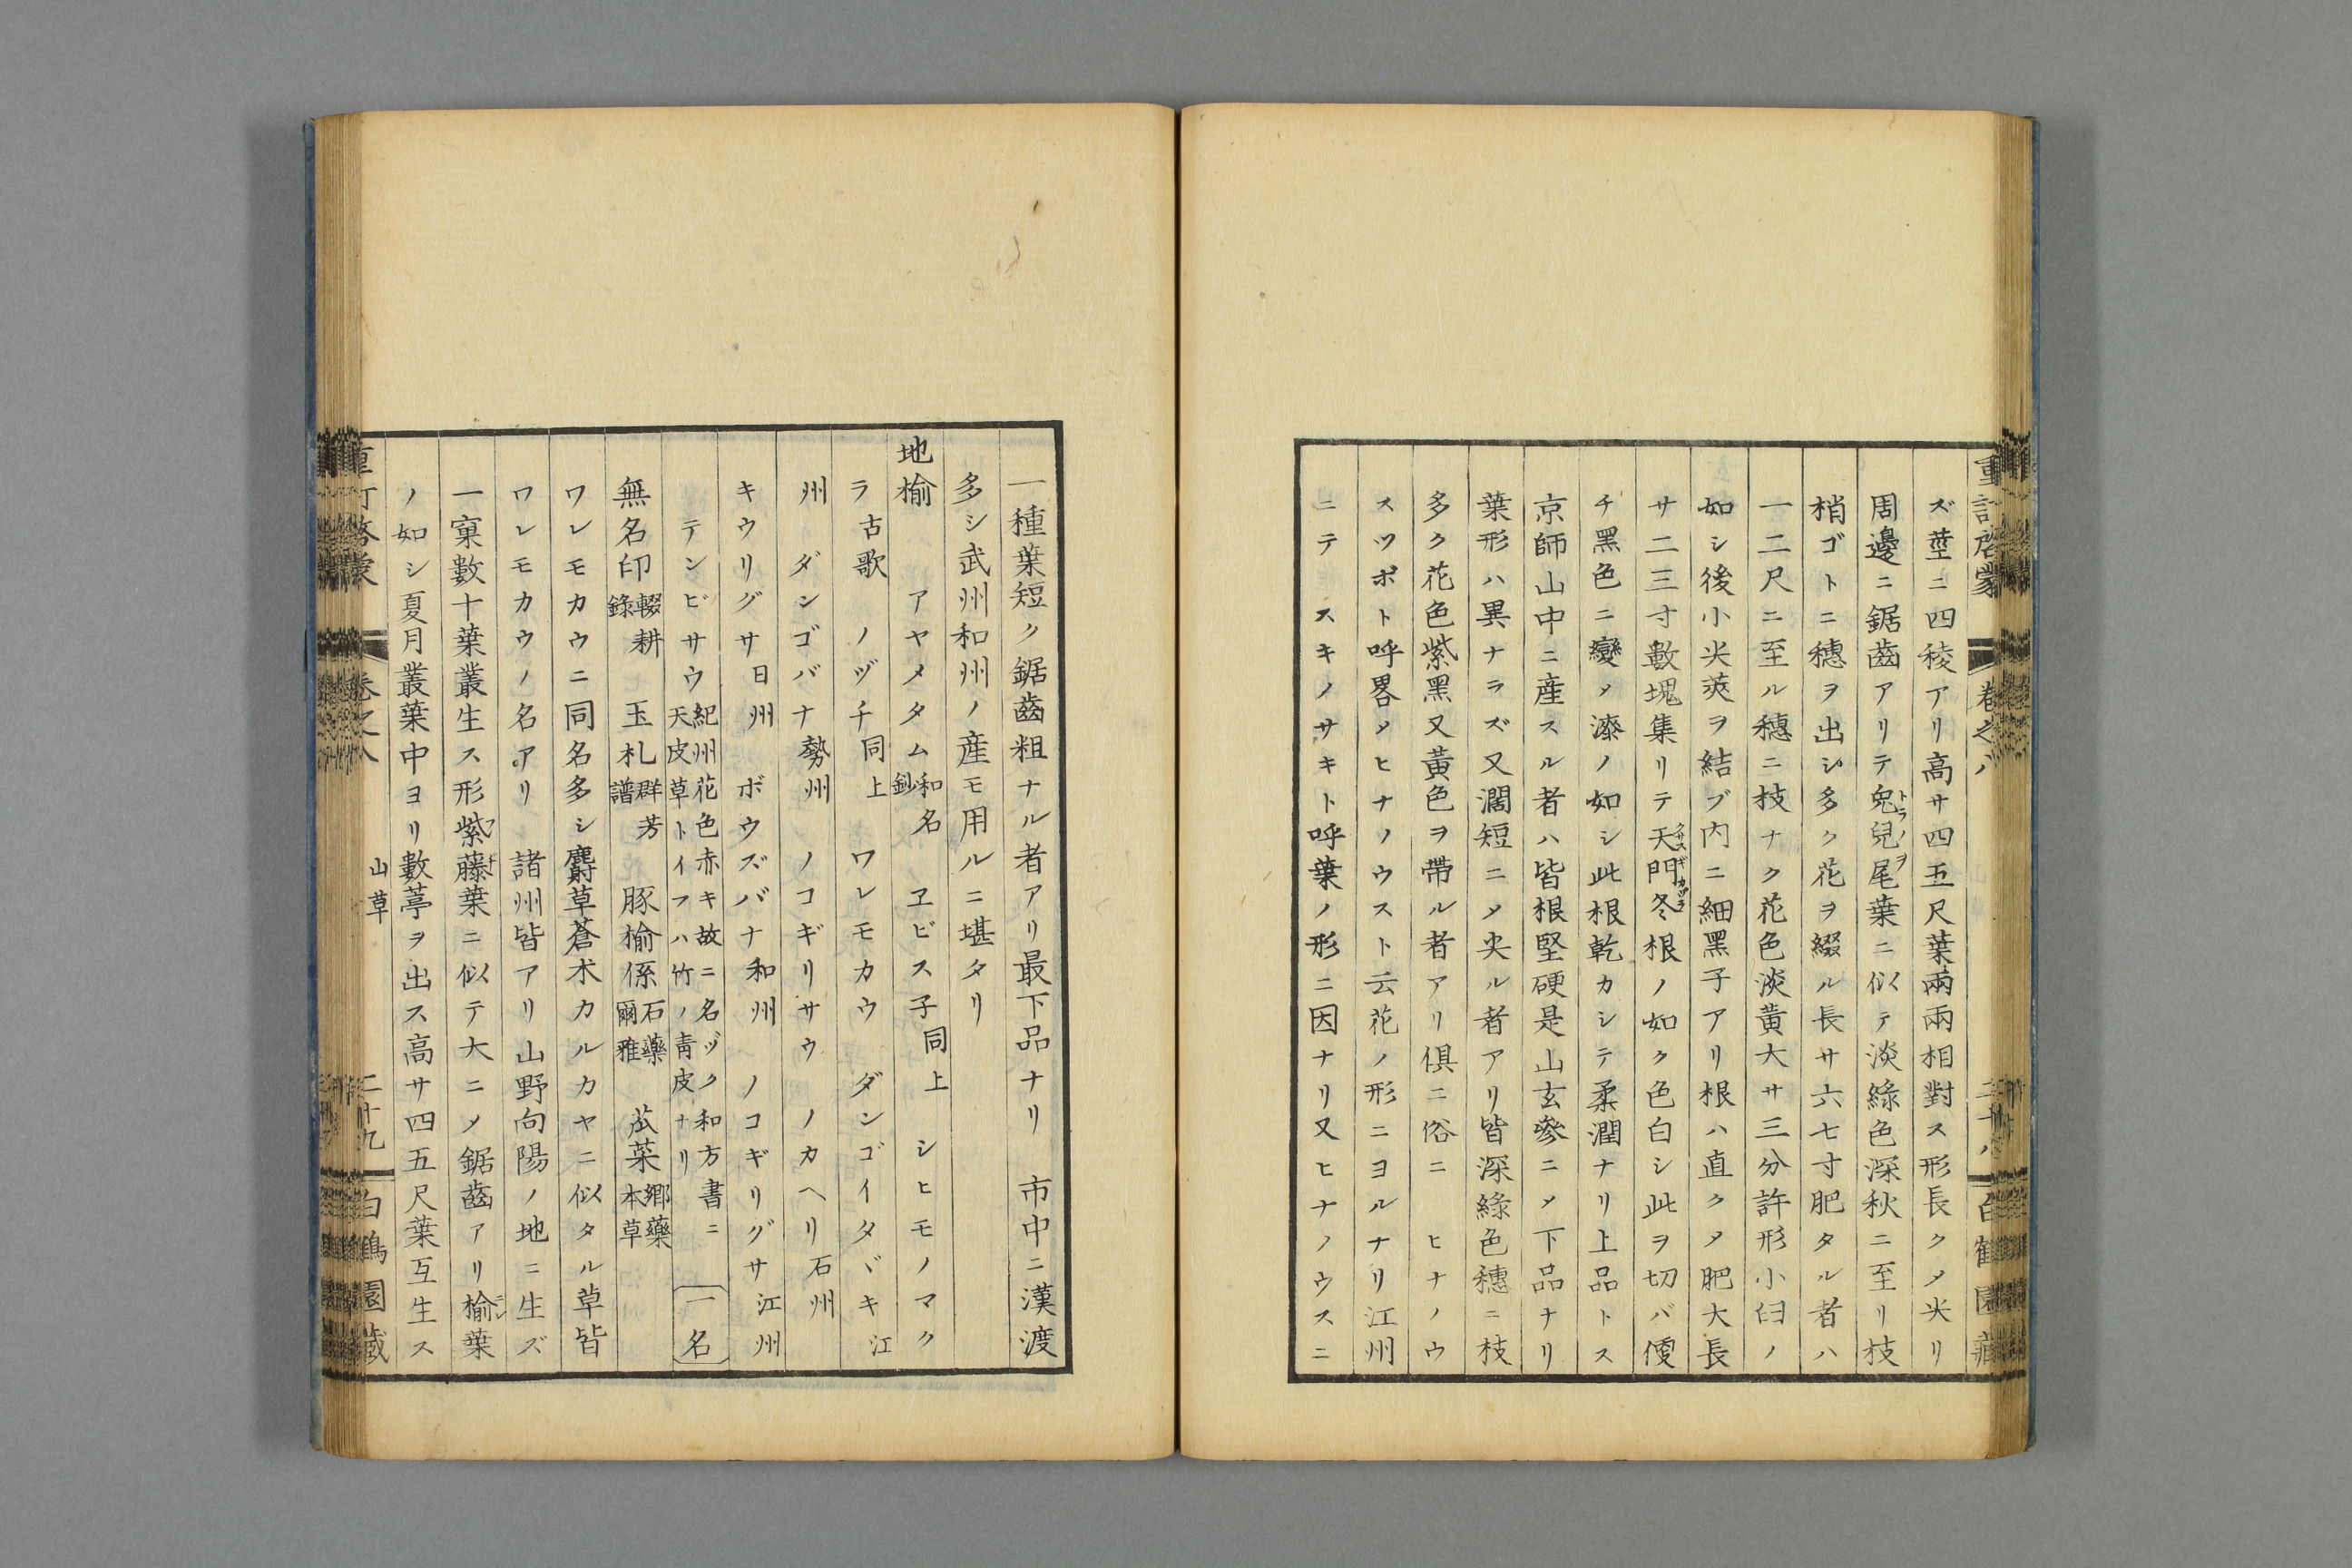 重訂啓蒙 卷之八 二十八 白鶴園藏
ズ莖ニ四稜アリ高サ四五尺葉兩兩相對ス形長クメ尖リ
周邊ニ鋸齒アリテ兔兒尾葉ニ似テ淡綠色深秋ニ至リ枝
トラノヲ
梢ゴトニ穗ヲ出シ多ク花ヲ綴ル長サ六七寸肥タル者ハ
一二尺ニ至ル穗ニ枝ナク花色淡黃大サ三分許形小臼ノ
如シ後小尖莢ヲ結ブ内ニ細黑子アリ根ハ直クメ肥大長
サ二三寸數塊集リテ天門冬根ノ如ク色白シ此ヲ切バ㑓
チ黑色ニ變メ漆ノ如シ此根乾カシテ柔潤ナリ上品トス
京師山中ニ産スル者ハ皆根堅硬是山玄參ニメ下品ナリ
葉形ハ異ナラズ又濶短ニメ尖ル者アリ皆深綠色穗ニ枝
多ク花色紫黑又黃色ヲ帶ル者アリ俱ニ俗ニ ヒナノウ
スツボト呼畧メヒナノウスト云花ノ形ニヨルナリ江州
ニテ スキノサキト呼葉ノ形ニ因ナリ又ヒナノウスニ
一種葉短ク鋸齒粗ナル者アリ最下品ナリ 市中ニ漢渡
多シ武州和州ノ産モ用ルニ堪タリ
地榆 アヤメタム和名鈔 ヱビス子同上 シヒモノマク
ラ古歌 ノヅチ同上 ワレモカウ ダンゴイタヾキ江
州 ダンゴバナ勢州 ノコギリサウ ノカヘリ石州
キウリグサ日州 ボウズバナ和州 ノコギリグサ江州
テンビサウ紀州花色赤キ故ニ名ヅク和方書ニ天皮草トイフハ竹ノ靑皮ナリ 一名
無名印輟耕錄 玉札群芳譜 豚榆係石藥爾雅 苽菜鄉藥本草
ワレモカウニ同名多シ麝草蒼朮カルカヤニ似タル草皆
ワレモカウノ名アリ 諸州皆アリ山野向陽ノ地ニ生ズ
一窠數十葉叢生ス形紫藤葉ニ似テ大ニメ鋸齒アリ榆葉
ノ如シ夏月叢葉中ヨリ數莖ヲ出ス高サ四五尺葉互生ス
重訂啓蒙 卷之八 山草 二十九 白鶴園藏